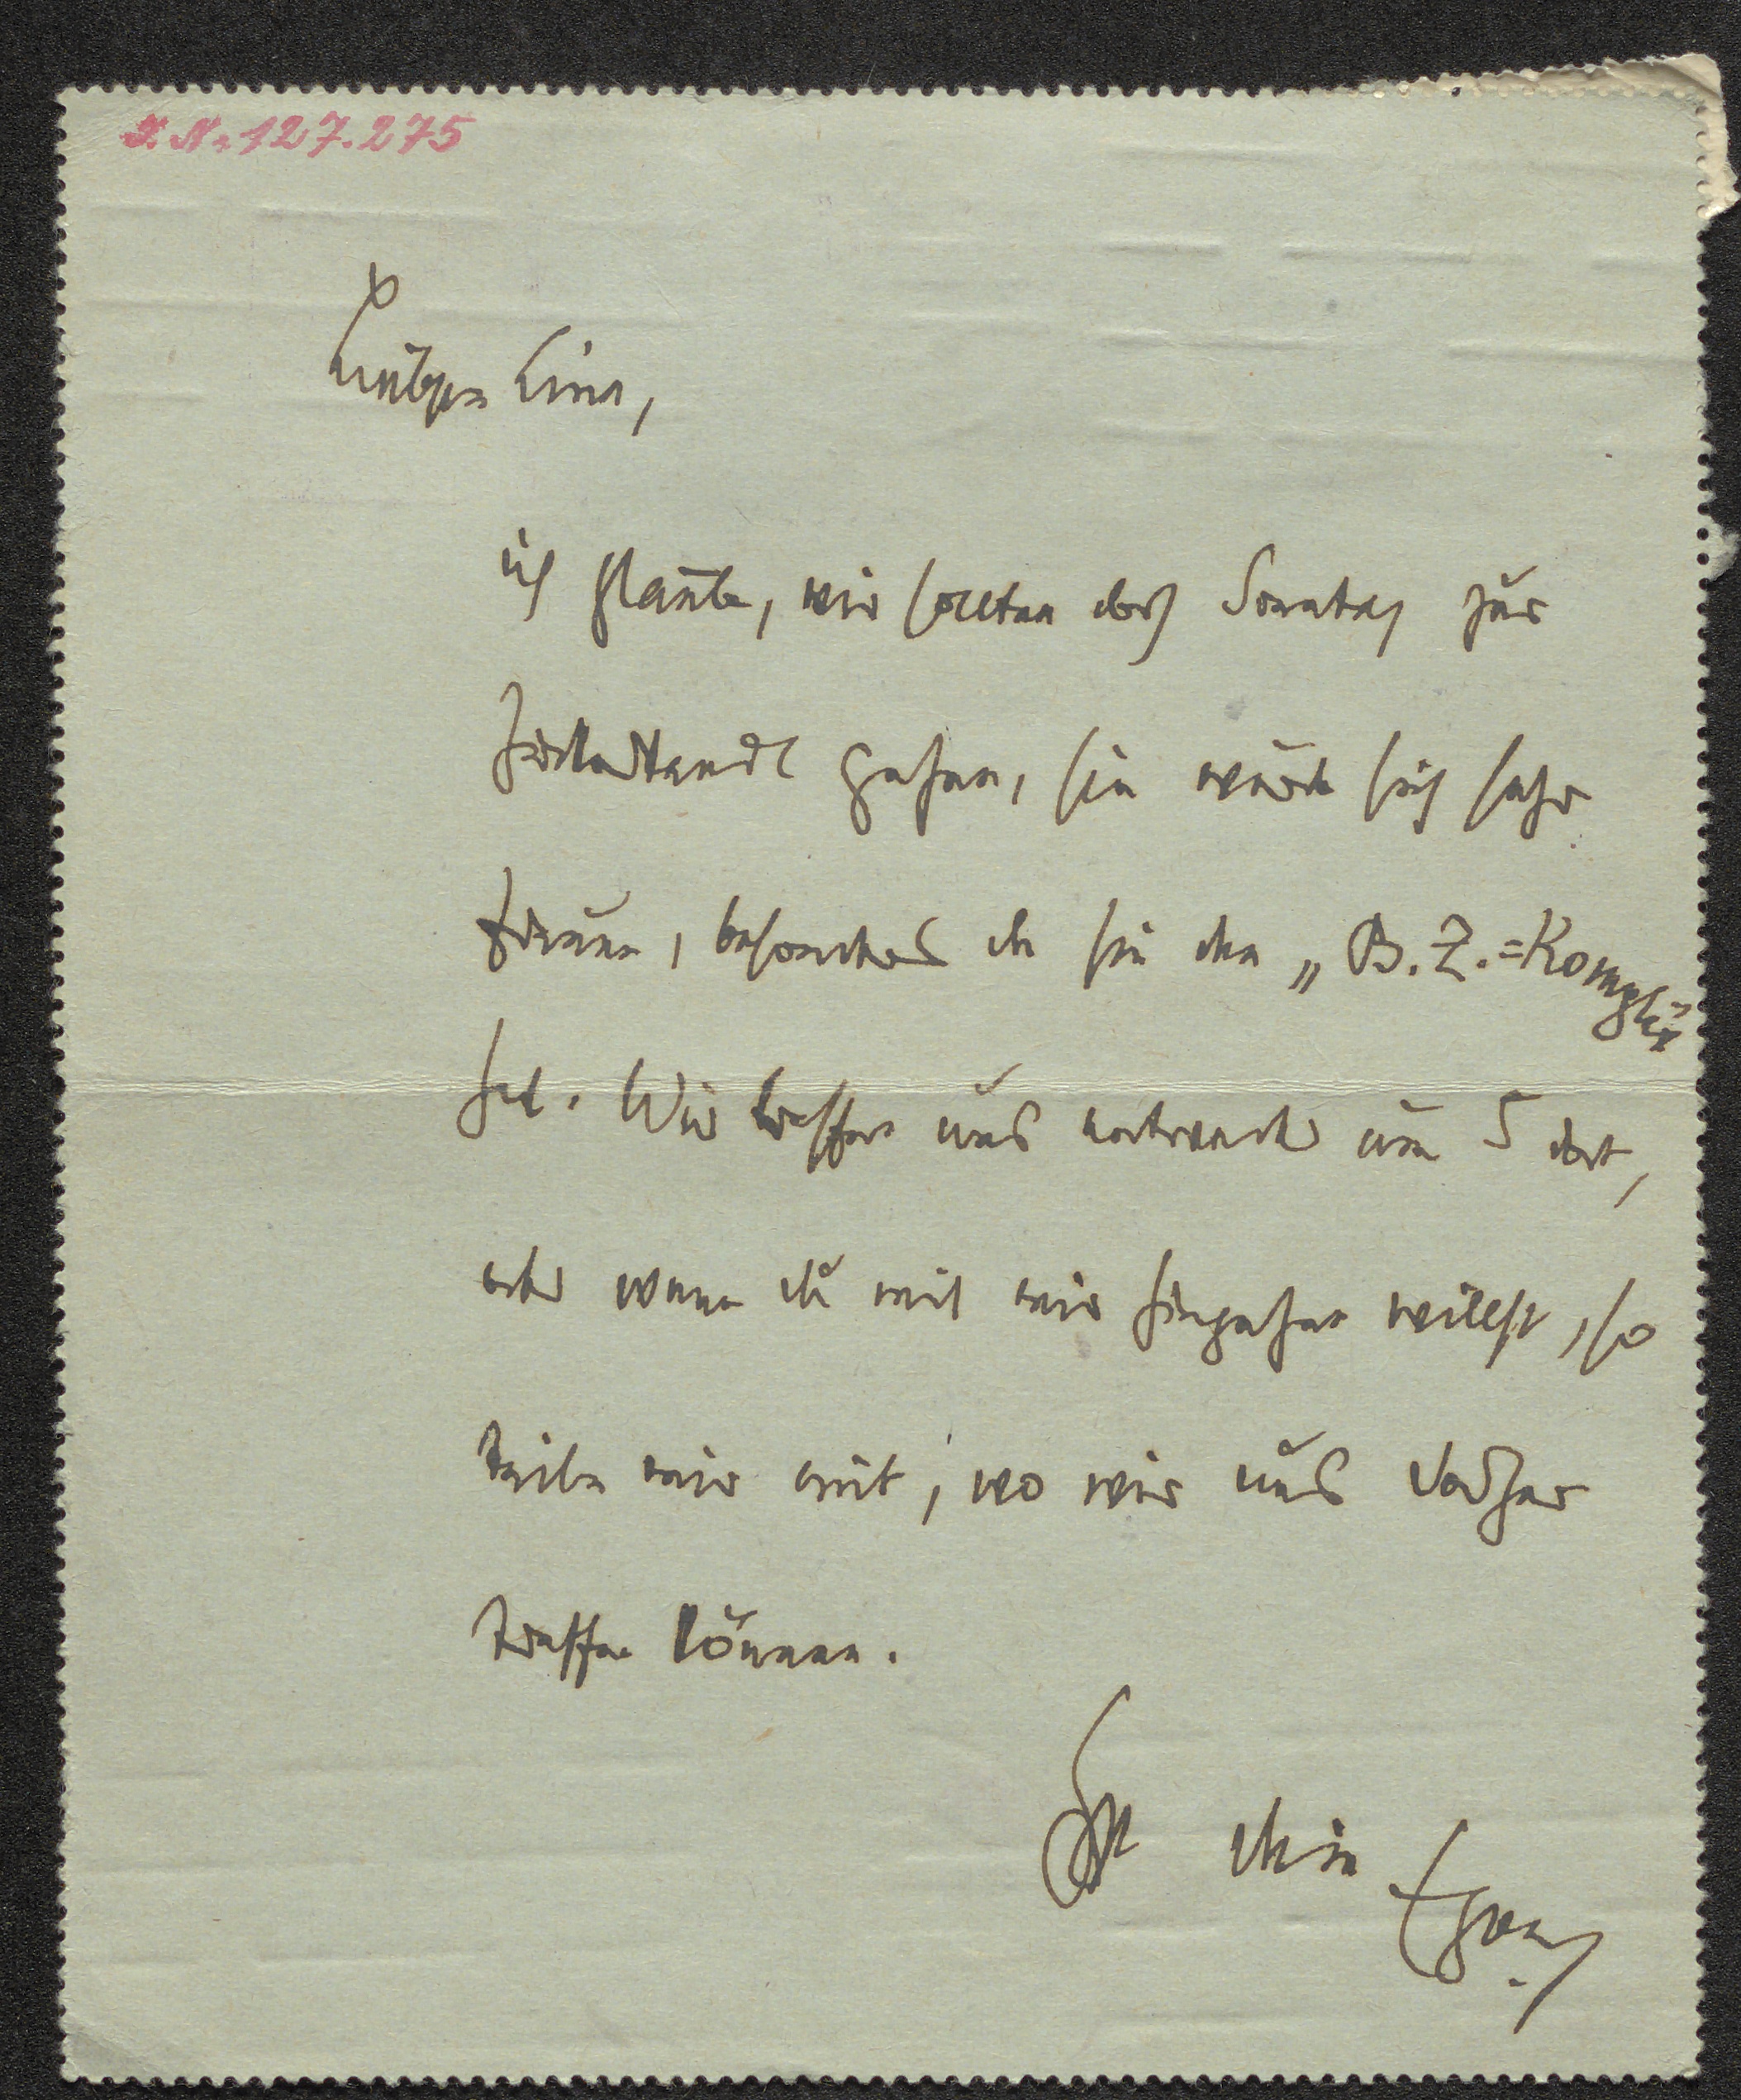 I. N. 127.275
Lina,
ich glaube, wir sollten doch Sonntag zur
gehen, sie würde sich sehr
freuen, besonders da sie den „B. Z.=Komplex
hat. Wir treffen uns entweder um 5 dort,
oder wenn du mit mir hingehen willst, so
teile mir mit, wo wir uns vorher
treffen können.
dein Egon